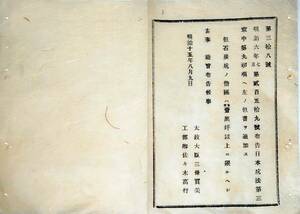 第三拾八號
明治六年七月第貳百五拾九號布告日本坑法第三
章中第九初項ヘ左ノ但書ヲ追加ス
但石炭坑ノ借區ハ壹萬坪以上ニ限ルヘシ
右奉　勅旨布告候事
明治十五年八月九日
太政大臣三條實美
工部卿佐々木高行